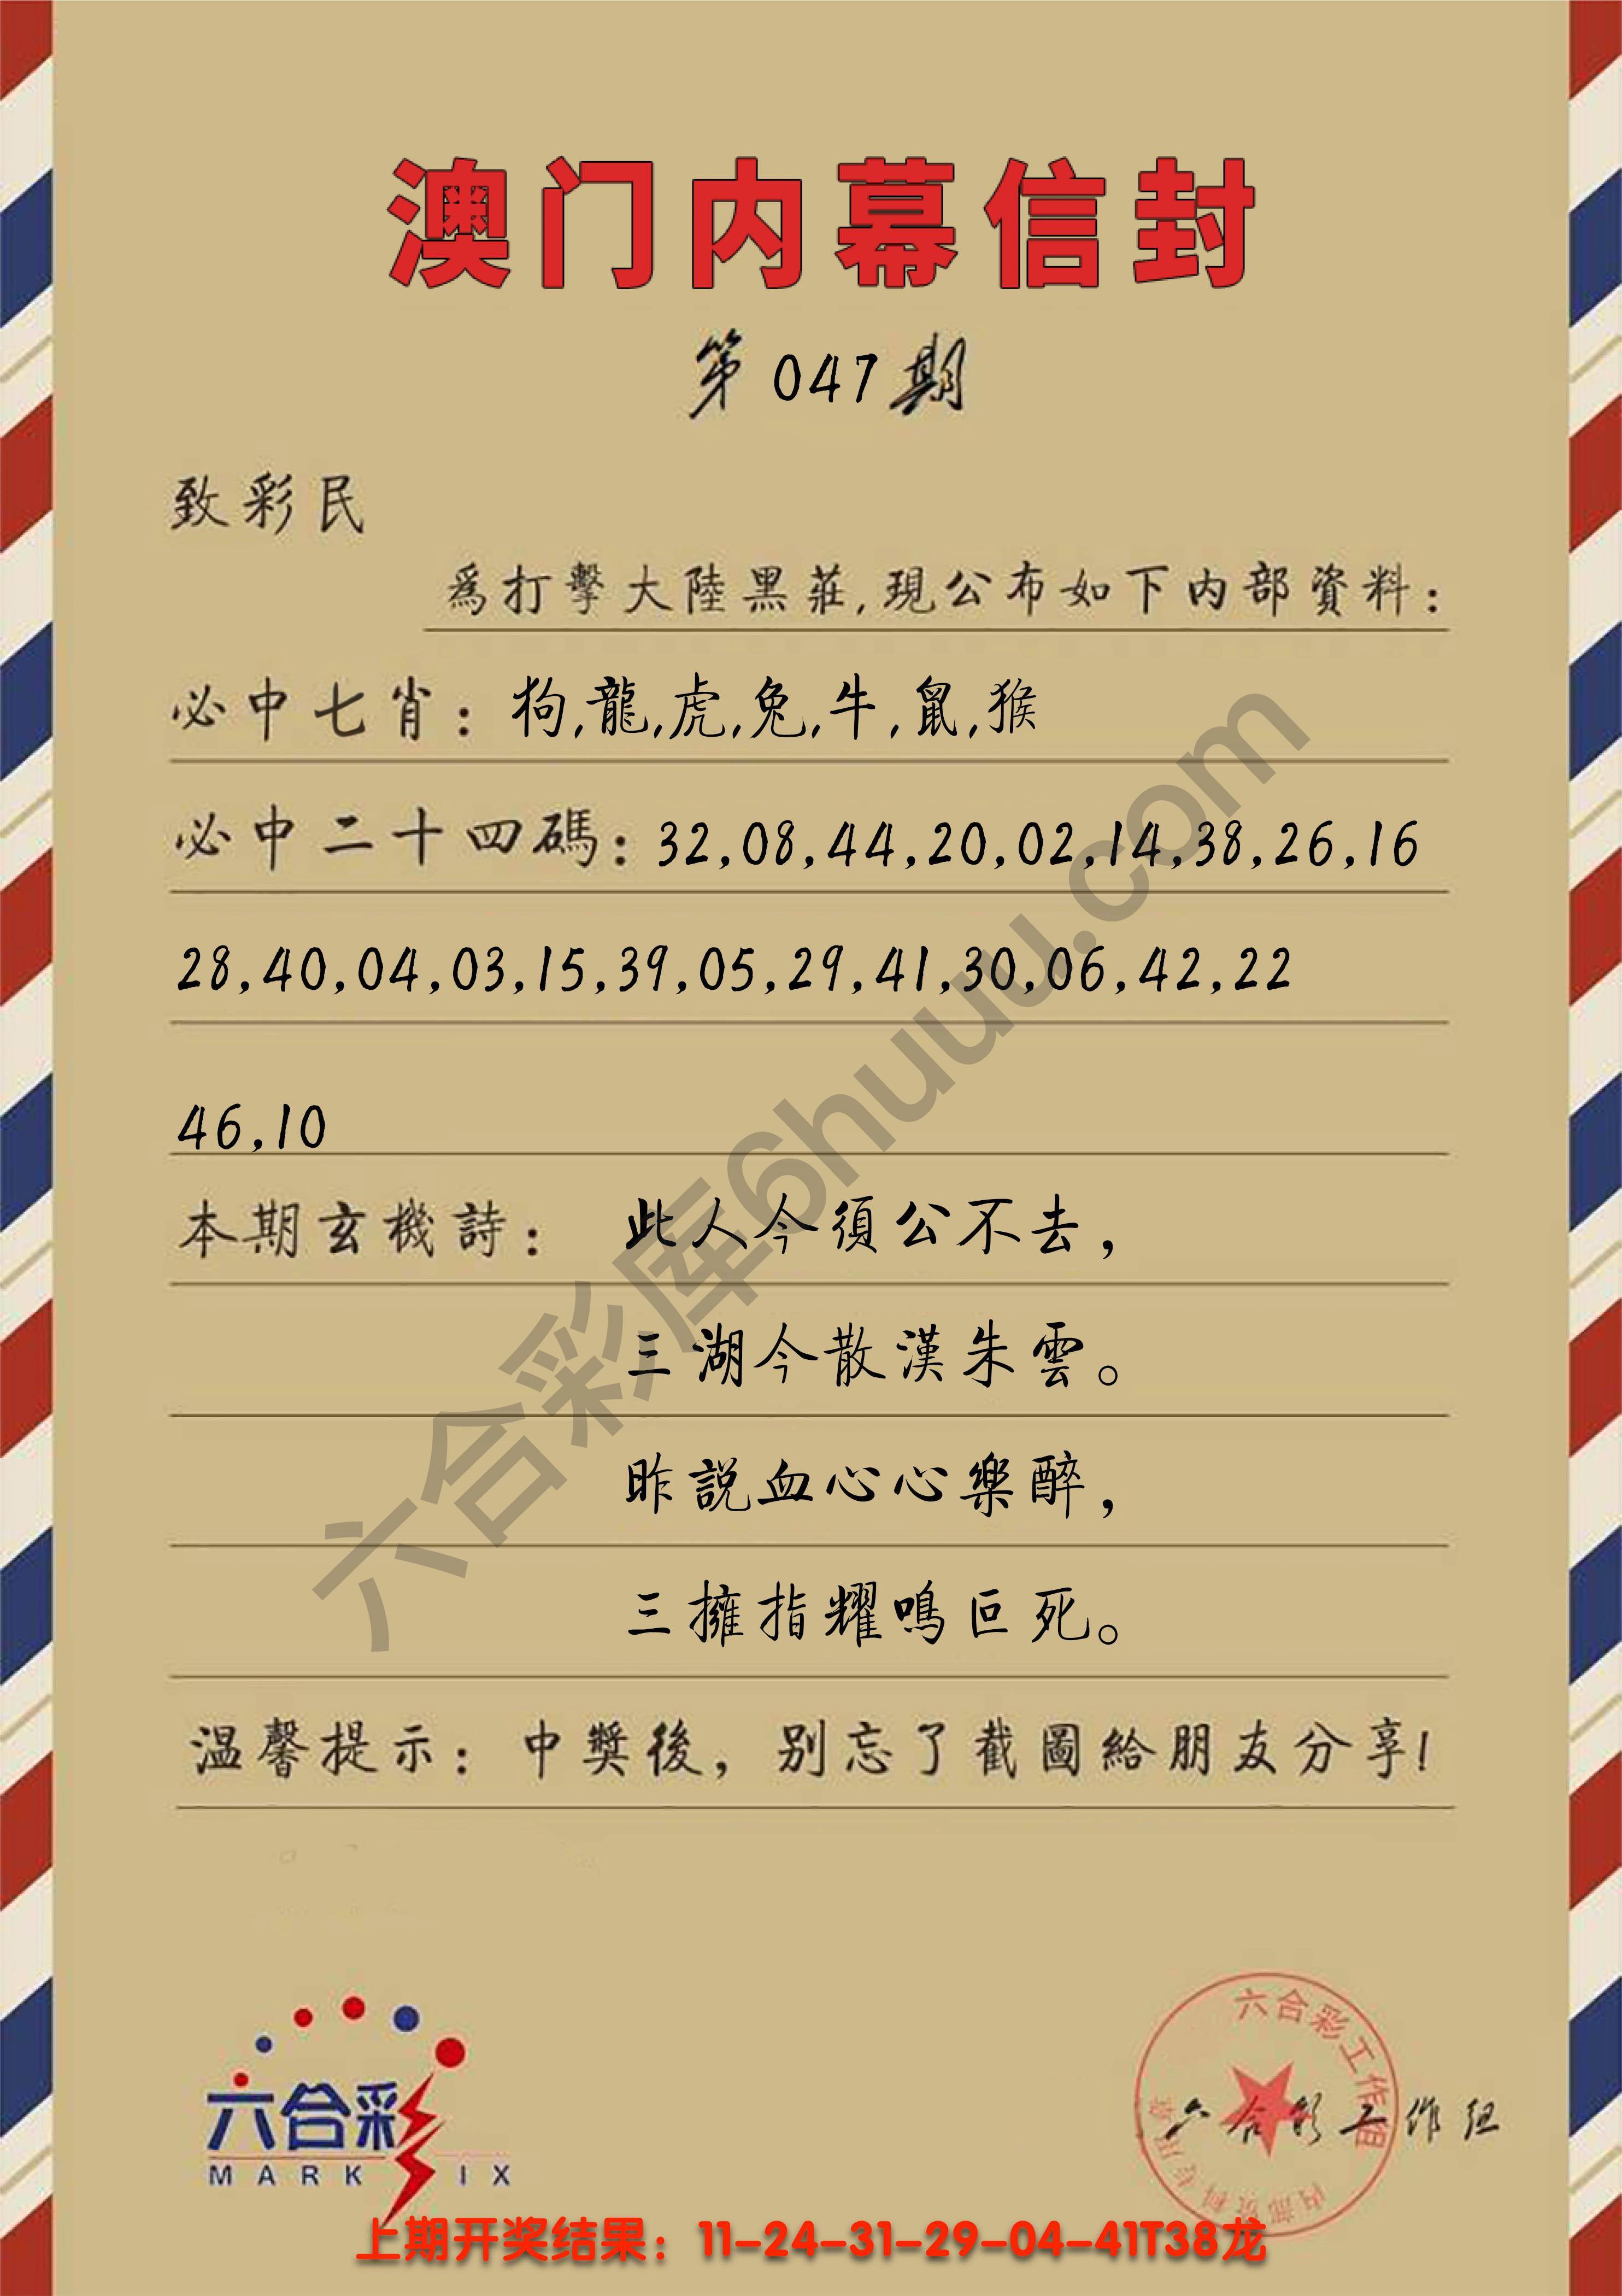 澳门内幕信封
第047期
致彩民
爲打擊大陸黑莊,現公布如下内部資料:
必中七肖:狗,龍,虎,兔,牛,鼠,猴
必中二十四碼:32,08,44,20,02,14,38,26,16
28,40,04,03,15,39,05,29,41,30,06,42,22
46,10
本期玄機詩: 此人今須公不去,
三湖今散漢朱雲。
昨説血心心樂醉,
三擁指耀鳴叵死。
温馨提示:中獎後,别忘了截圖給朋友分享!
六合彩库6huuu.com
六合彩
MARK SIX
六合彩工作组
内部资料专用章
六合彩工作组
上期开奖结果:11-24-31-29-04-41T38龙